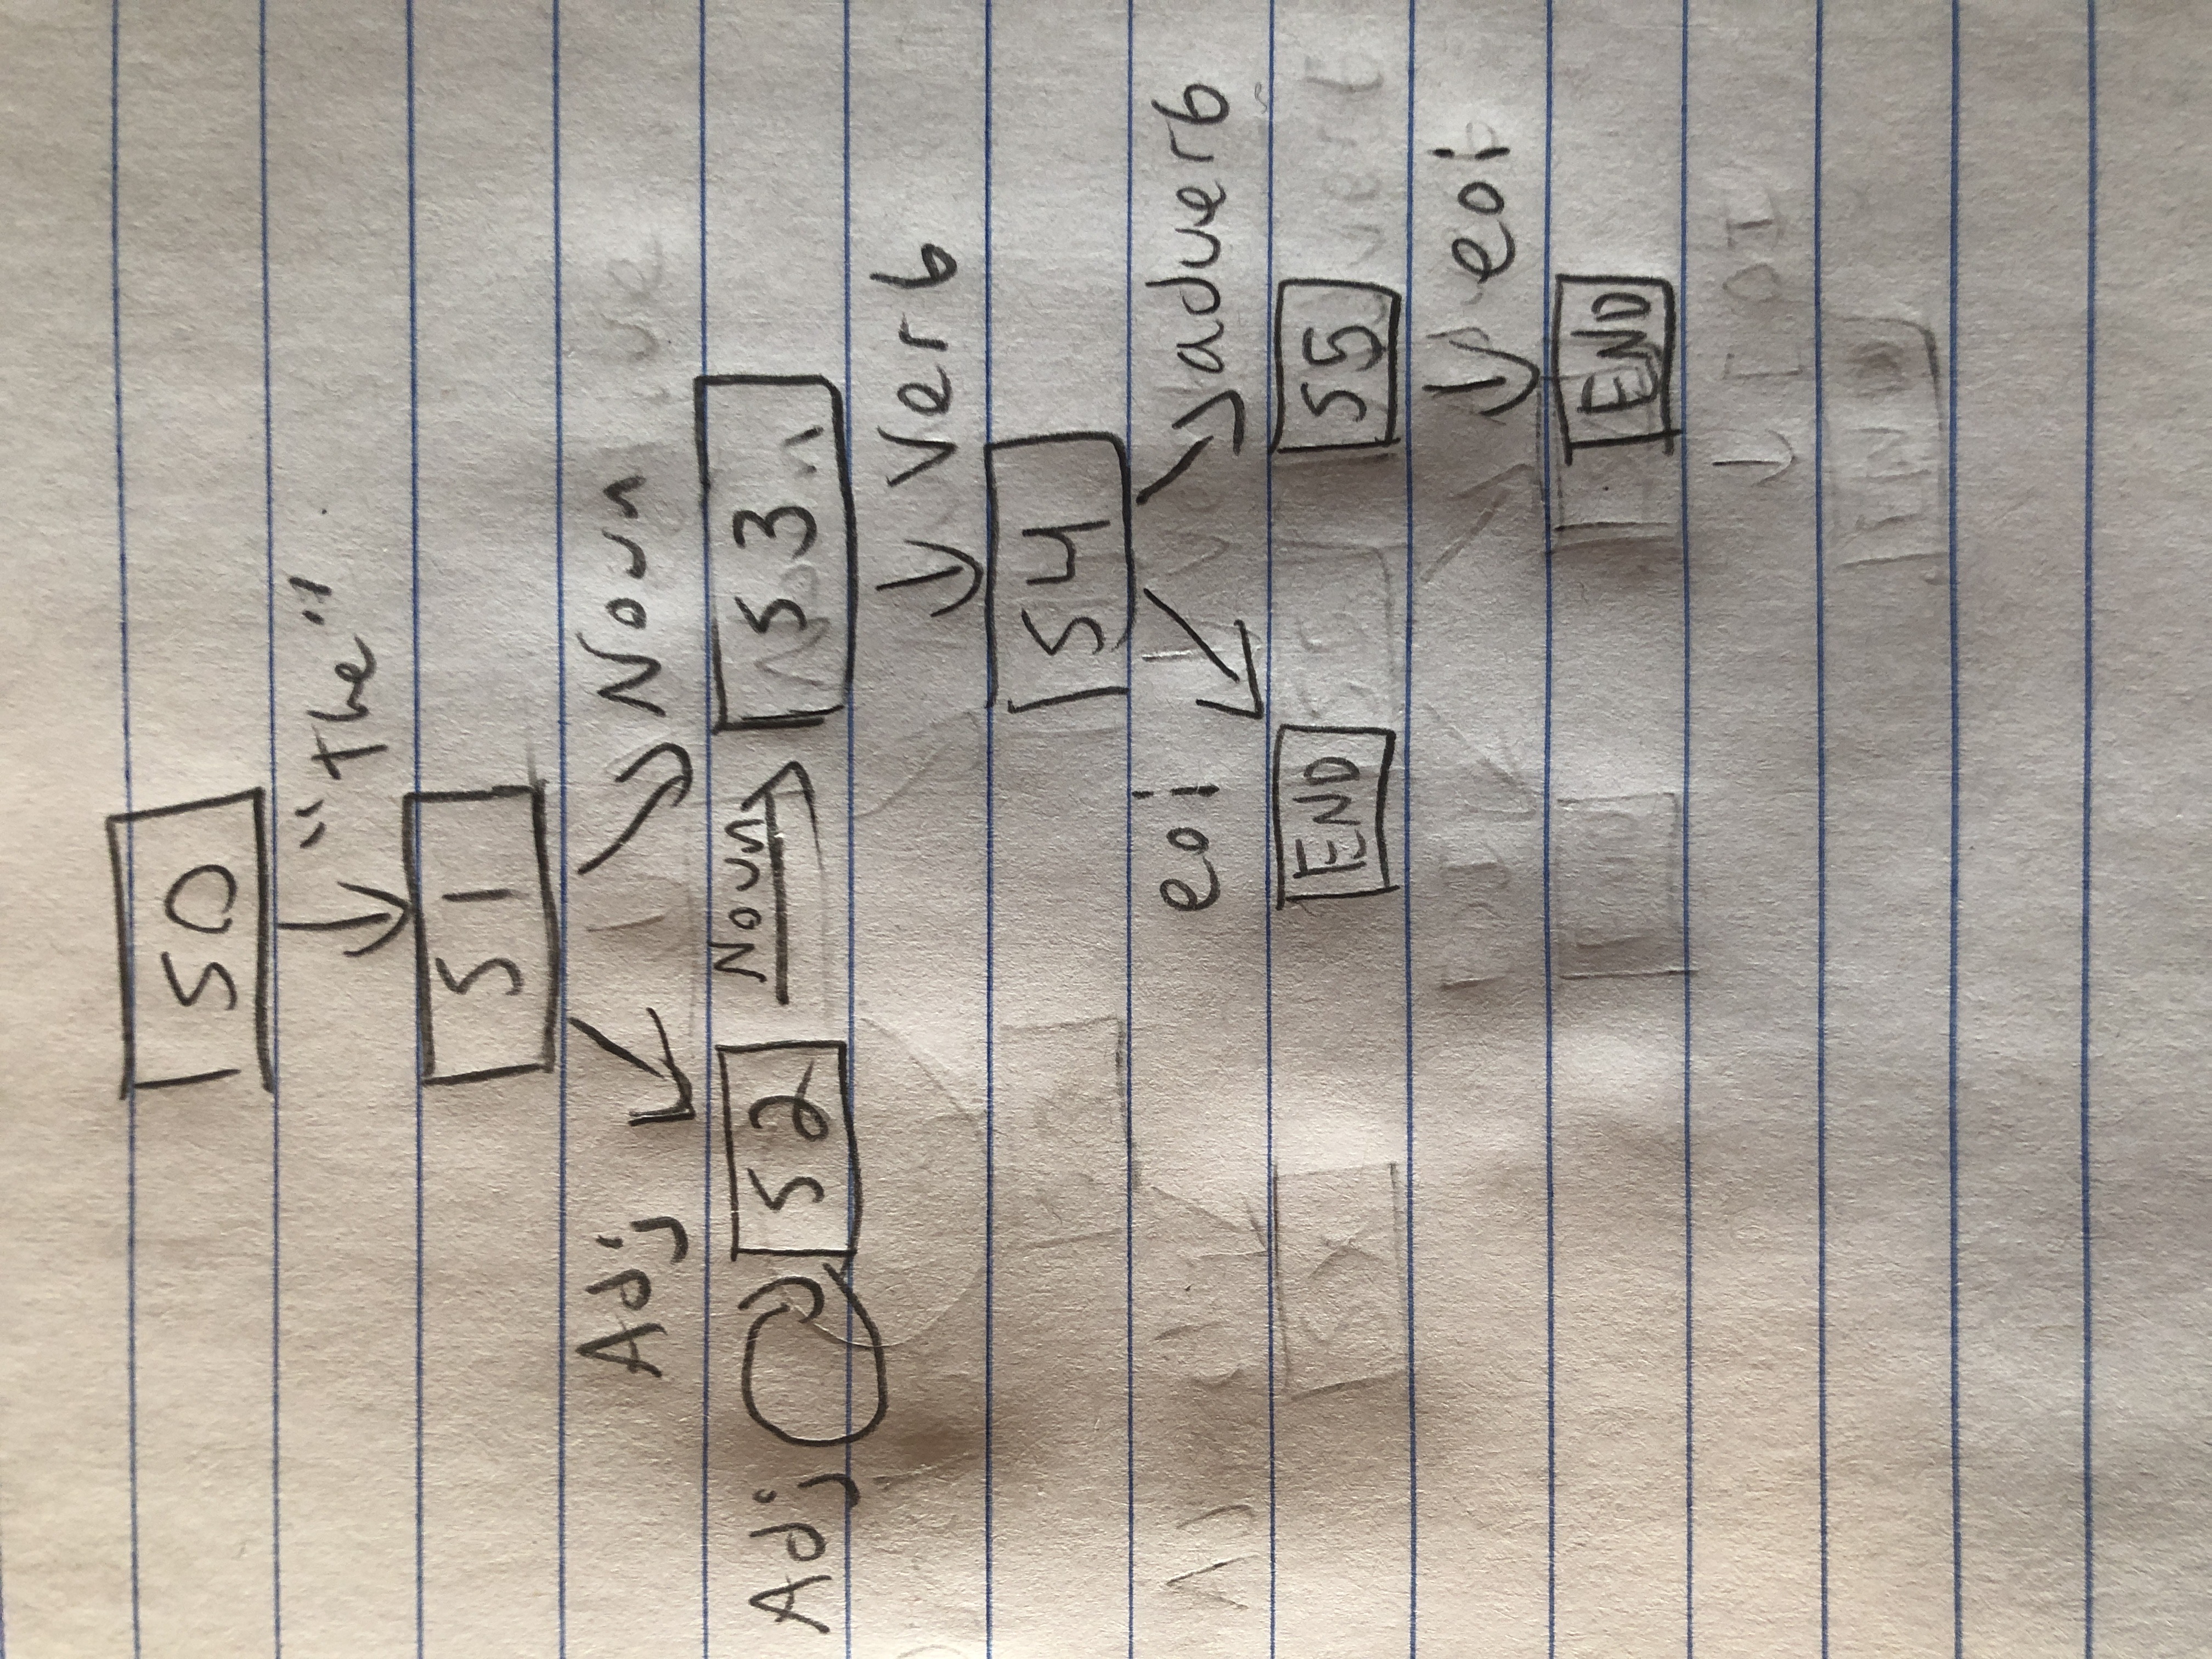 S0
"The"
S1
Adj Noun
Adj S2 Noun S3
Verb
S4
eoi adverb
END S5
eoi
END
EOI
END